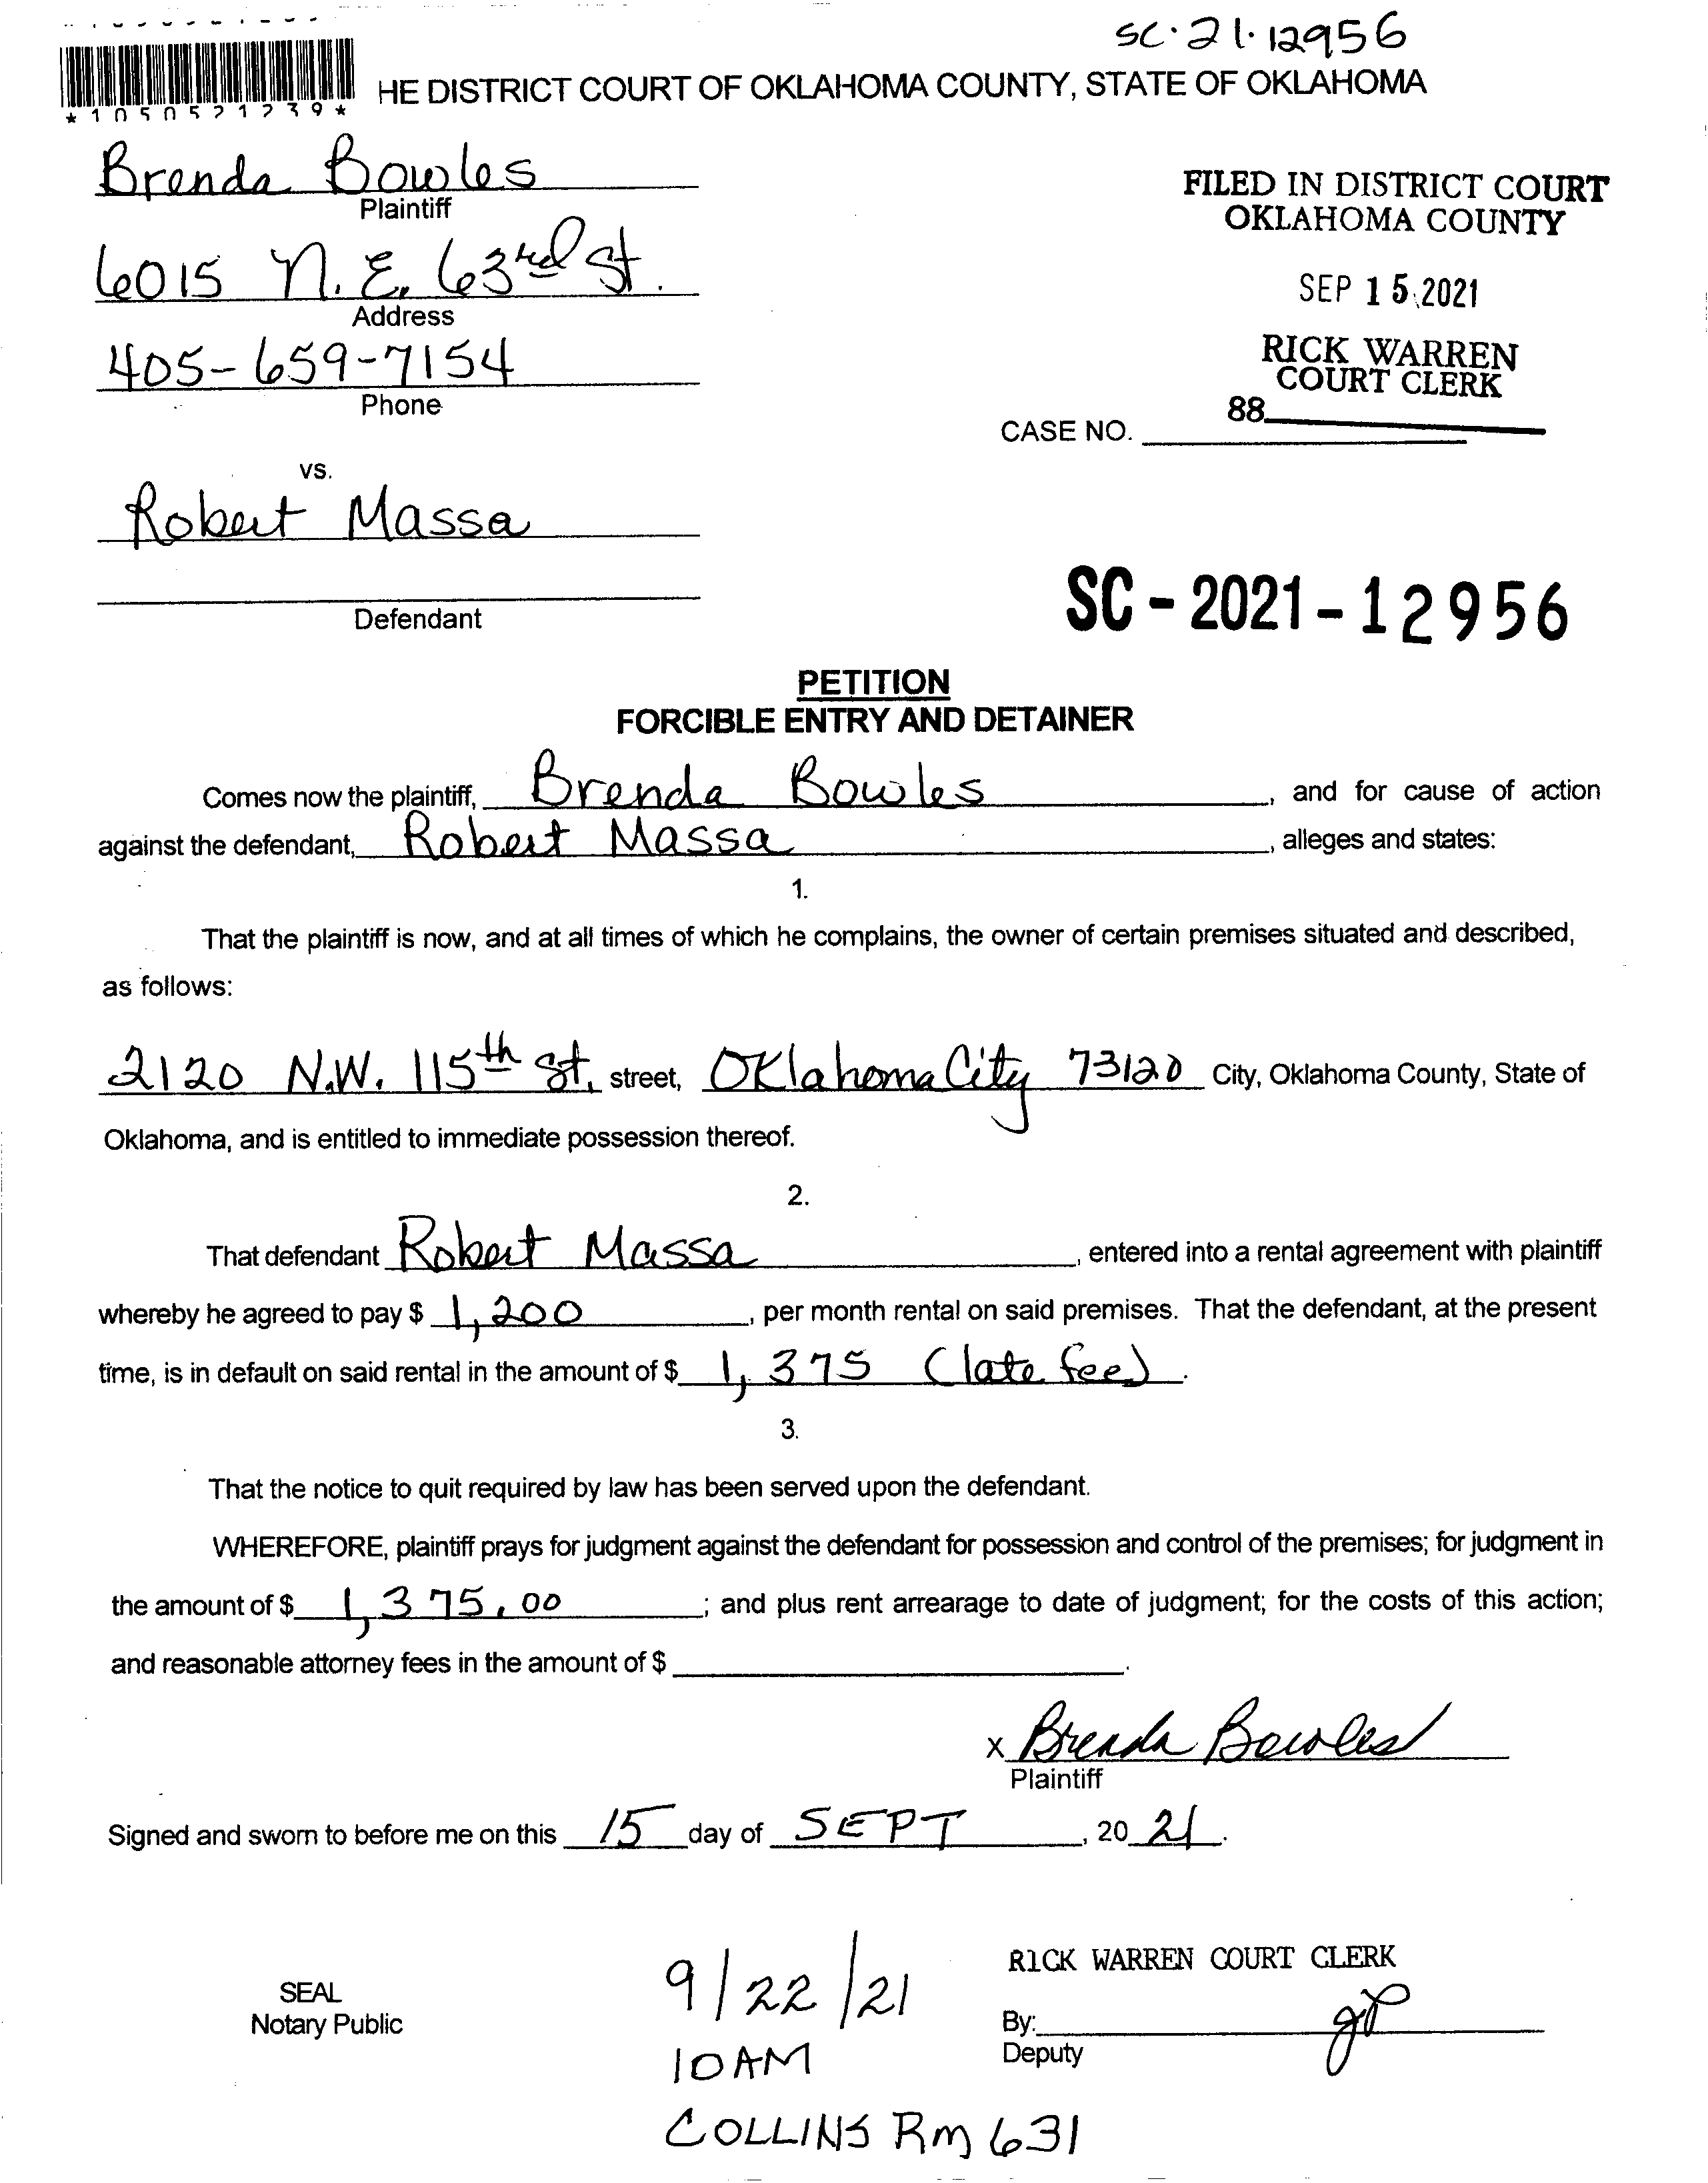 SC·21·12956
HE DISTRICT COURT OF OKLAHOMA COUNTY, STATE OF OKLAHOMA
*1050521239*
Brenda Bowles
Plaintiff
6015 N.E. 63rd St.
Address
405-659-7154
Phone
FILED IN DISTRICT COURT
OKLAHOMA COUNTY
SEP 15 2021
RICK WARREN
COURT CLERK
88
CASE NO.
vs.
Robert Massa
Defendant
SC-2021-12956
PETITION
FORCIBLE ENTRY AND DETAINER
Comes now the plaintiff, Brenda Bowles, and for cause of action
against the defendant, Robert Massa, alleges and states:
1.
That the plaintiff is now, and at all times of which he complains, the owner of certain premises situated and described,
as follows:
2120 N.W. 115th St. street, Oklahoma City 73120 City, Oklahoma County, State of
Oklahoma, and is entitled to immediate possession thereof.
2.
That defendant Robert Massa, entered into a rental agreement with plaintiff
whereby he agreed to pay $ 1,200, per month rental on said premises. That the defendant, at the present
time, is in default on said rental in the amount of $ 1,375 (late fee).
3.
That the notice to quit required by law has been served upon the defendant.
WHEREFORE, plaintiff prays for judgment against the defendant for possession and control of the premises; for judgment in
the amount of $ 1,375.00; and plus rent arrearage to date of judgment; for the costs of this action;
and reasonable attorney fees in the amount of $.
x Brenda Bowles
Plaintiff
Signed and sworn to before me on this 15 day of SEPT, 20 21.
SEAL
Notary Public
9/22/21
10AM
COLLINS Rm 631
RICK WARREN COURT CLERK
By:
Deputy